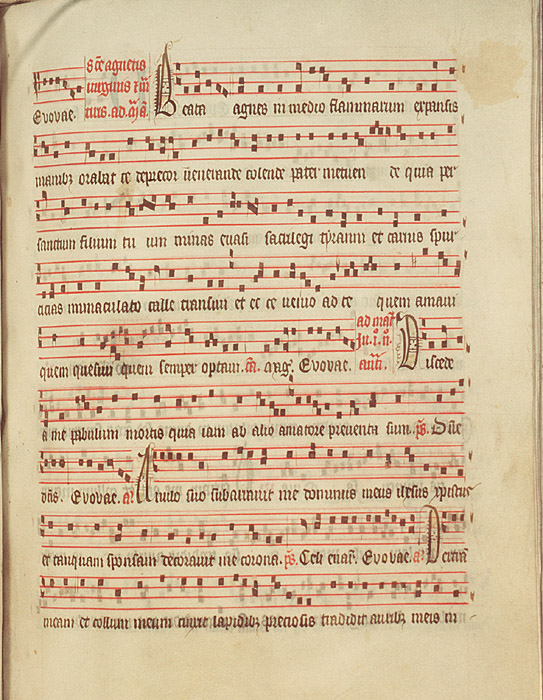 Evovae. sce agnetis virginis et mr̄ tiris. ad. Beata agnes in medio flammarum expansis
manibz orabat te deprecor venerande colende pater metuen de quia per
sanctum filium tu um minas evasi sacrilegi tyranni et carnis spur
citias immaculato calle transivi et ec ce venio ad te quem amavi
quem quesivi quem semper optavi. Evovae. ad Discede
a me pabulum mortis quia iam ab alio amatore preventa sum. ps. Dne
dns. Evovae. a. Anulo suo subarravit me dominus meus ihesus xpistus
et tanquam sponsam decoravit me corona. ps. Celi enar. Evovae. a. Dextrā
meam et collum meum cinxit lapidibz preciosis tradidit auribz meis in